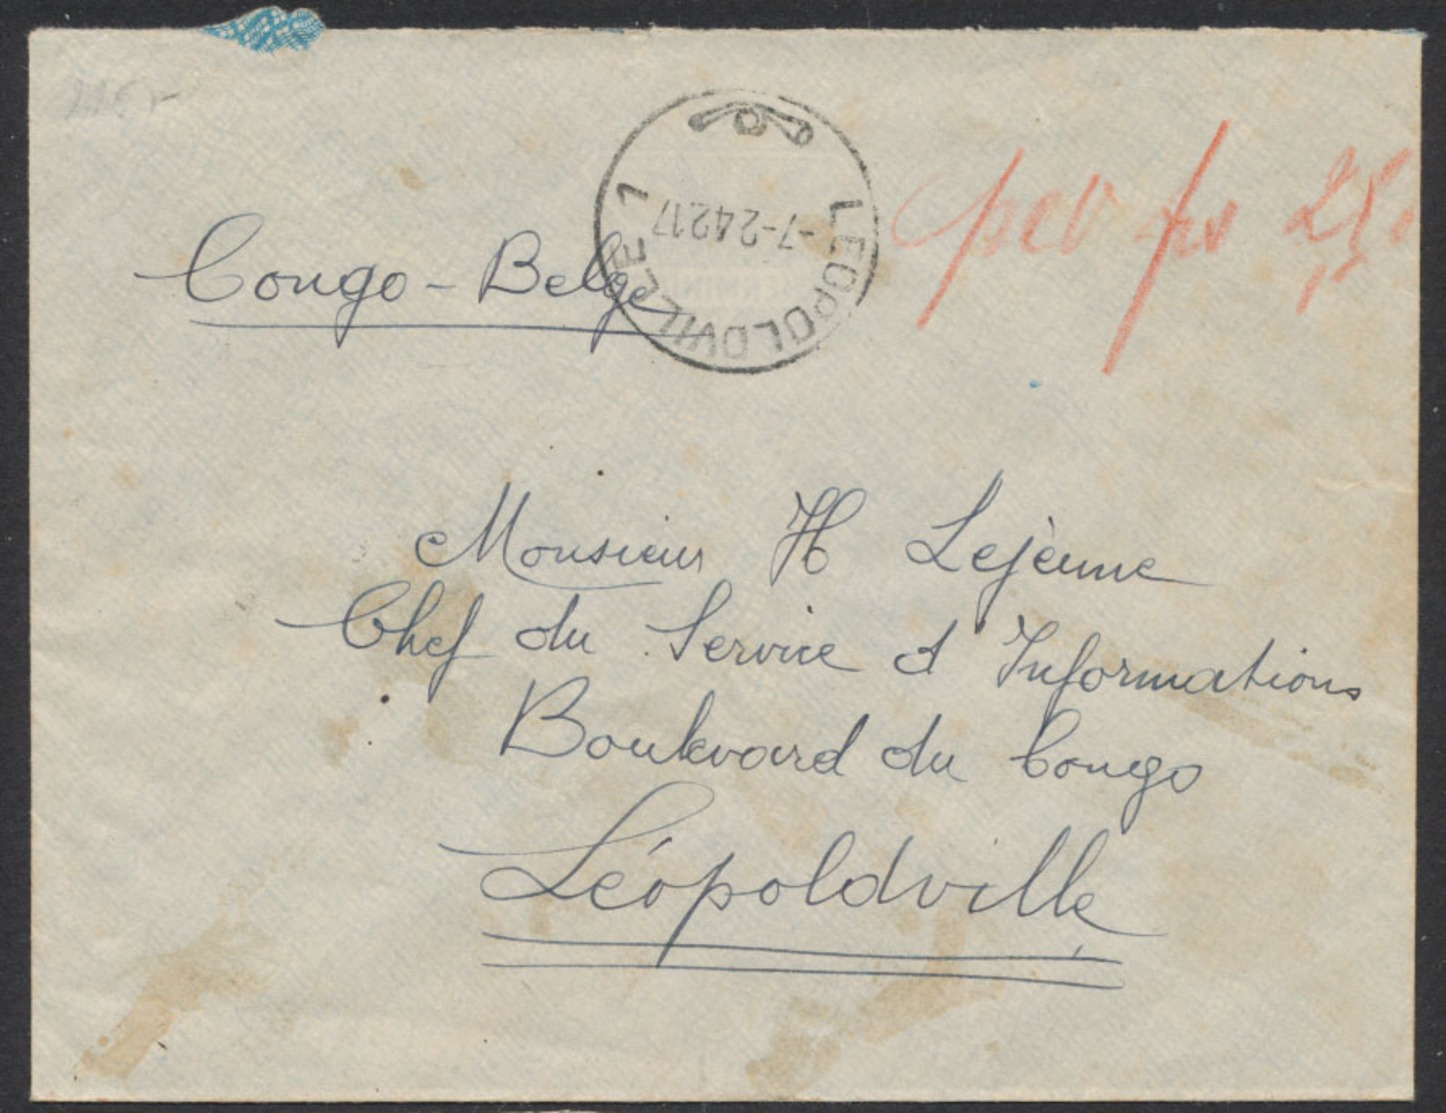 LEOPOLDVILLE 1
-7-2-42 17
Congo - Belge
Monsieur H Lejèune
Chef du Service d'Informations
Boulevard du Congo
Léopoldville